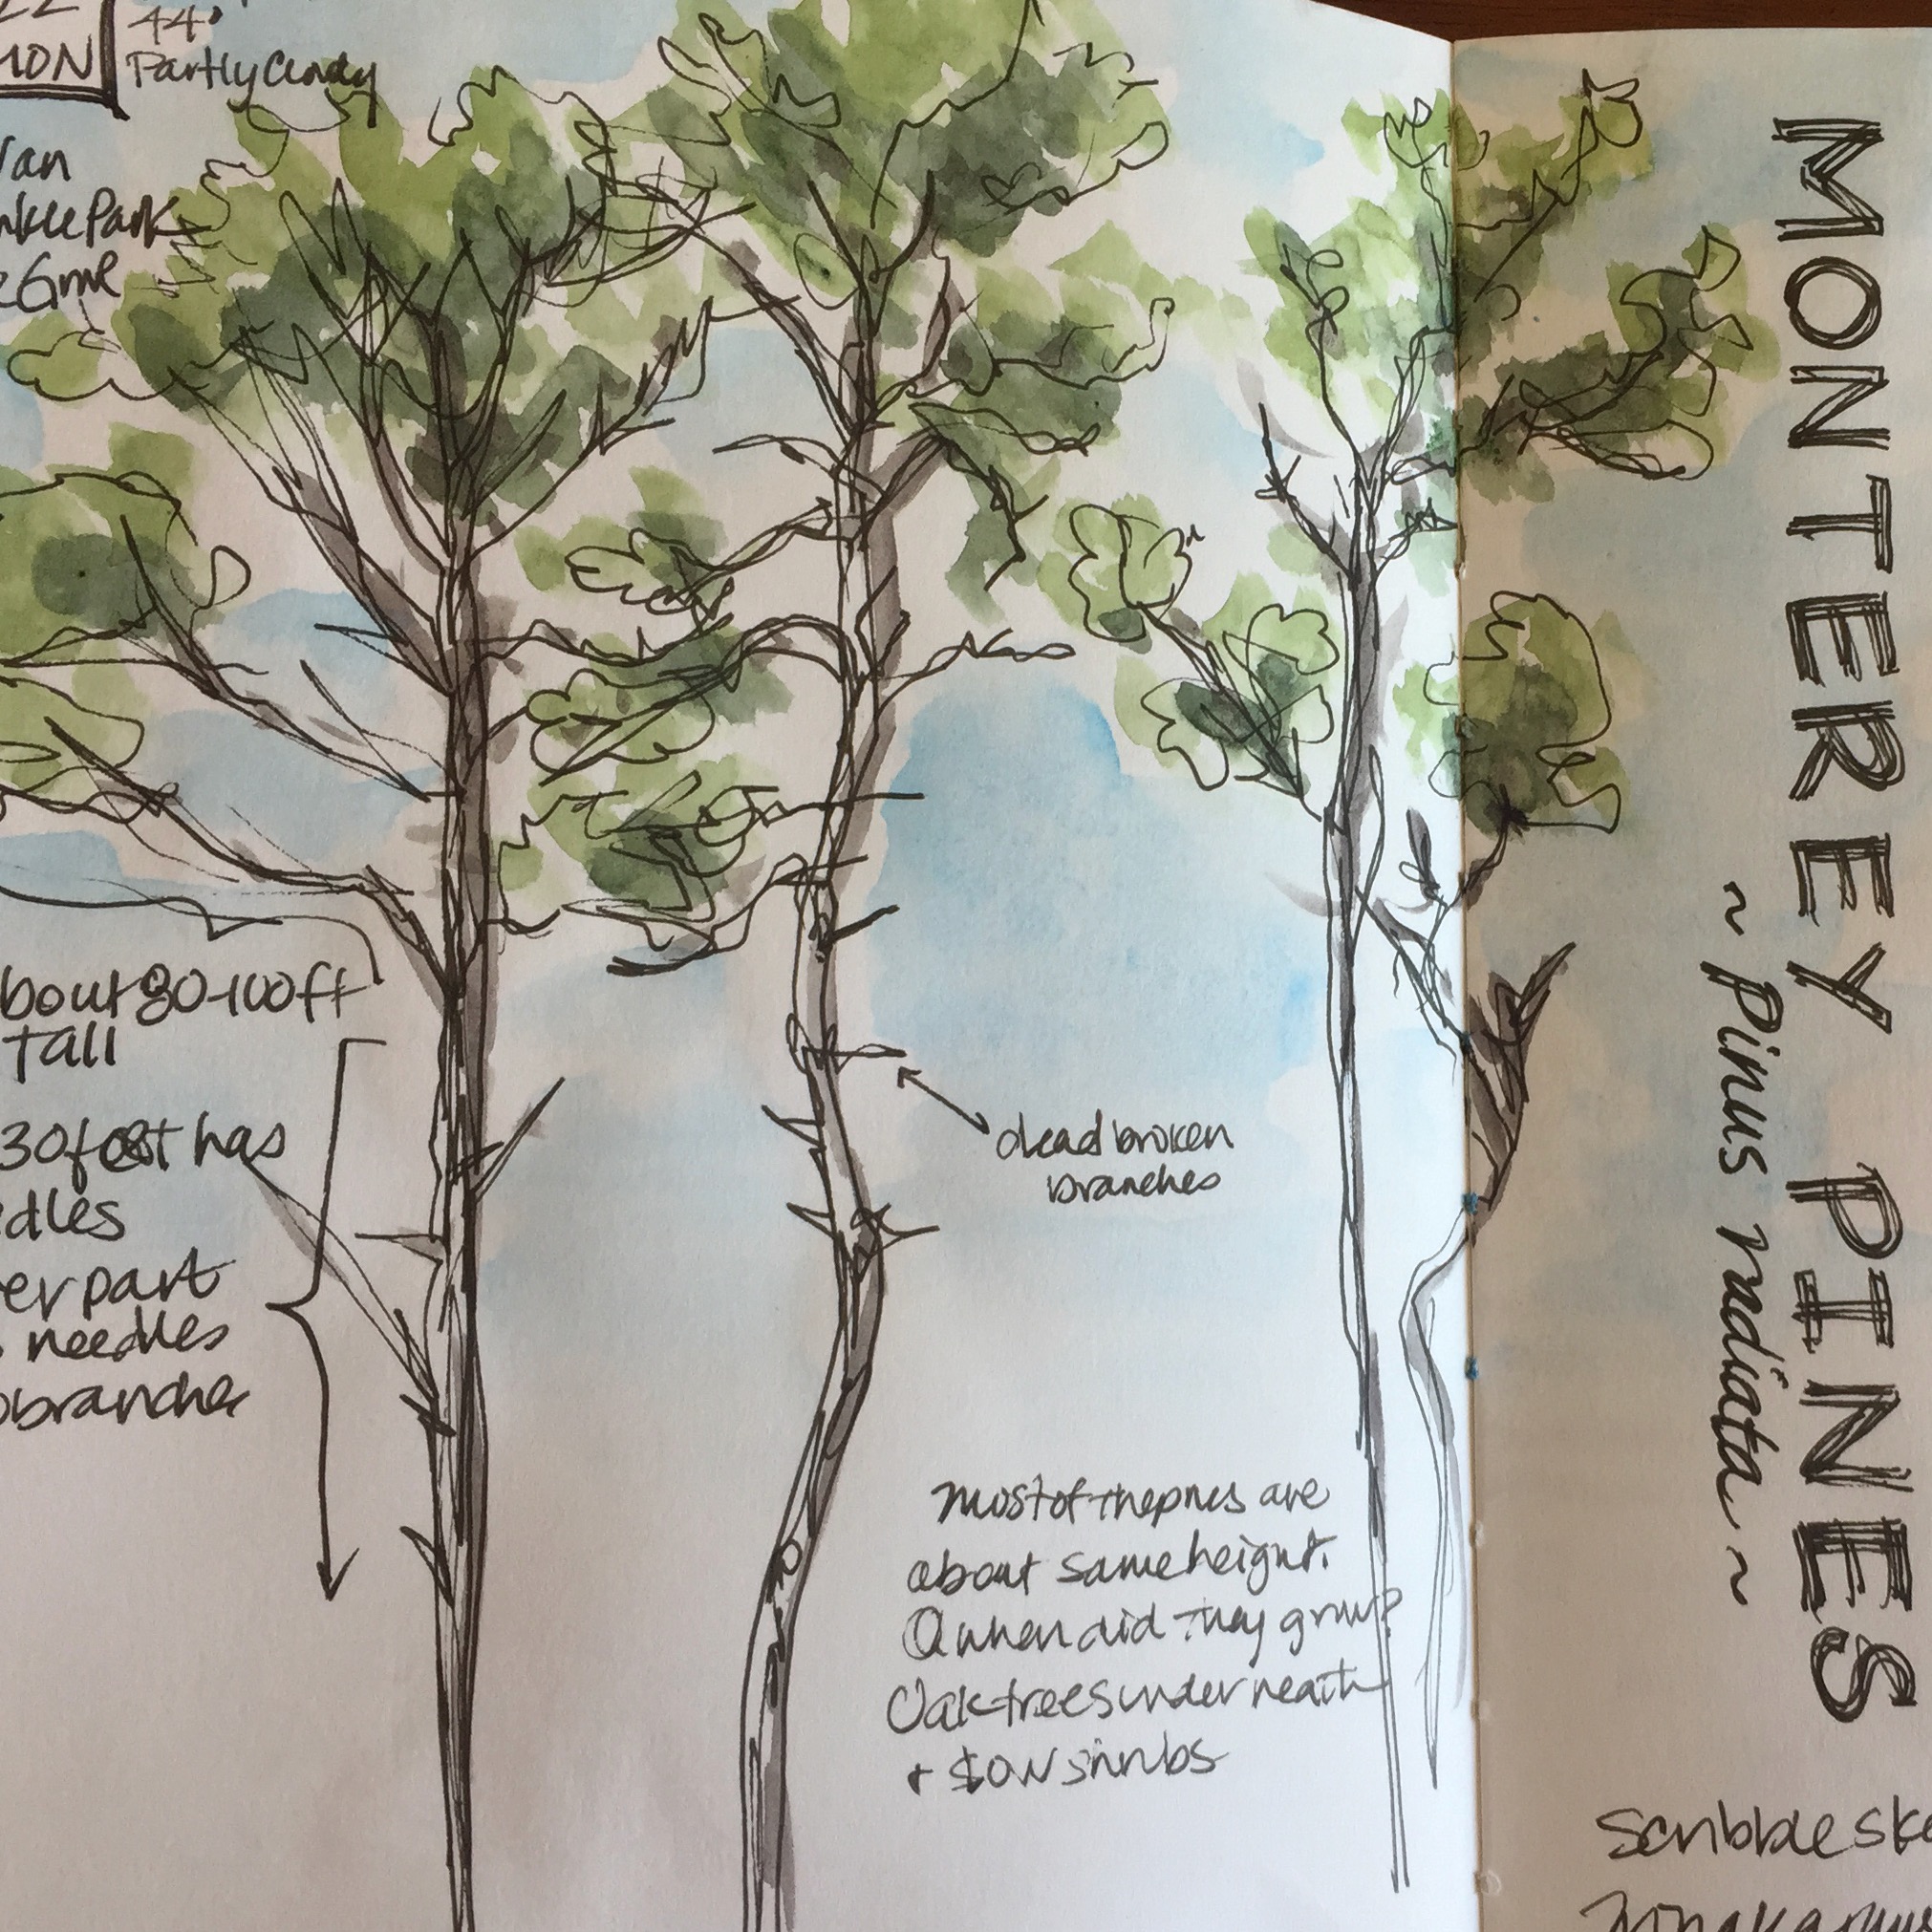 22
MON
44°
Partly Cloudy
Van
Park
about 80-100ft
tall
30 feet has
needles
part
needles
branches
dead broken
branches
most of the pines are
about same height.
Q when did they grow?
Oak trees underneath
+ low shrubs
MONTEREY PINES
~ Pinus radiata ~
Scribble